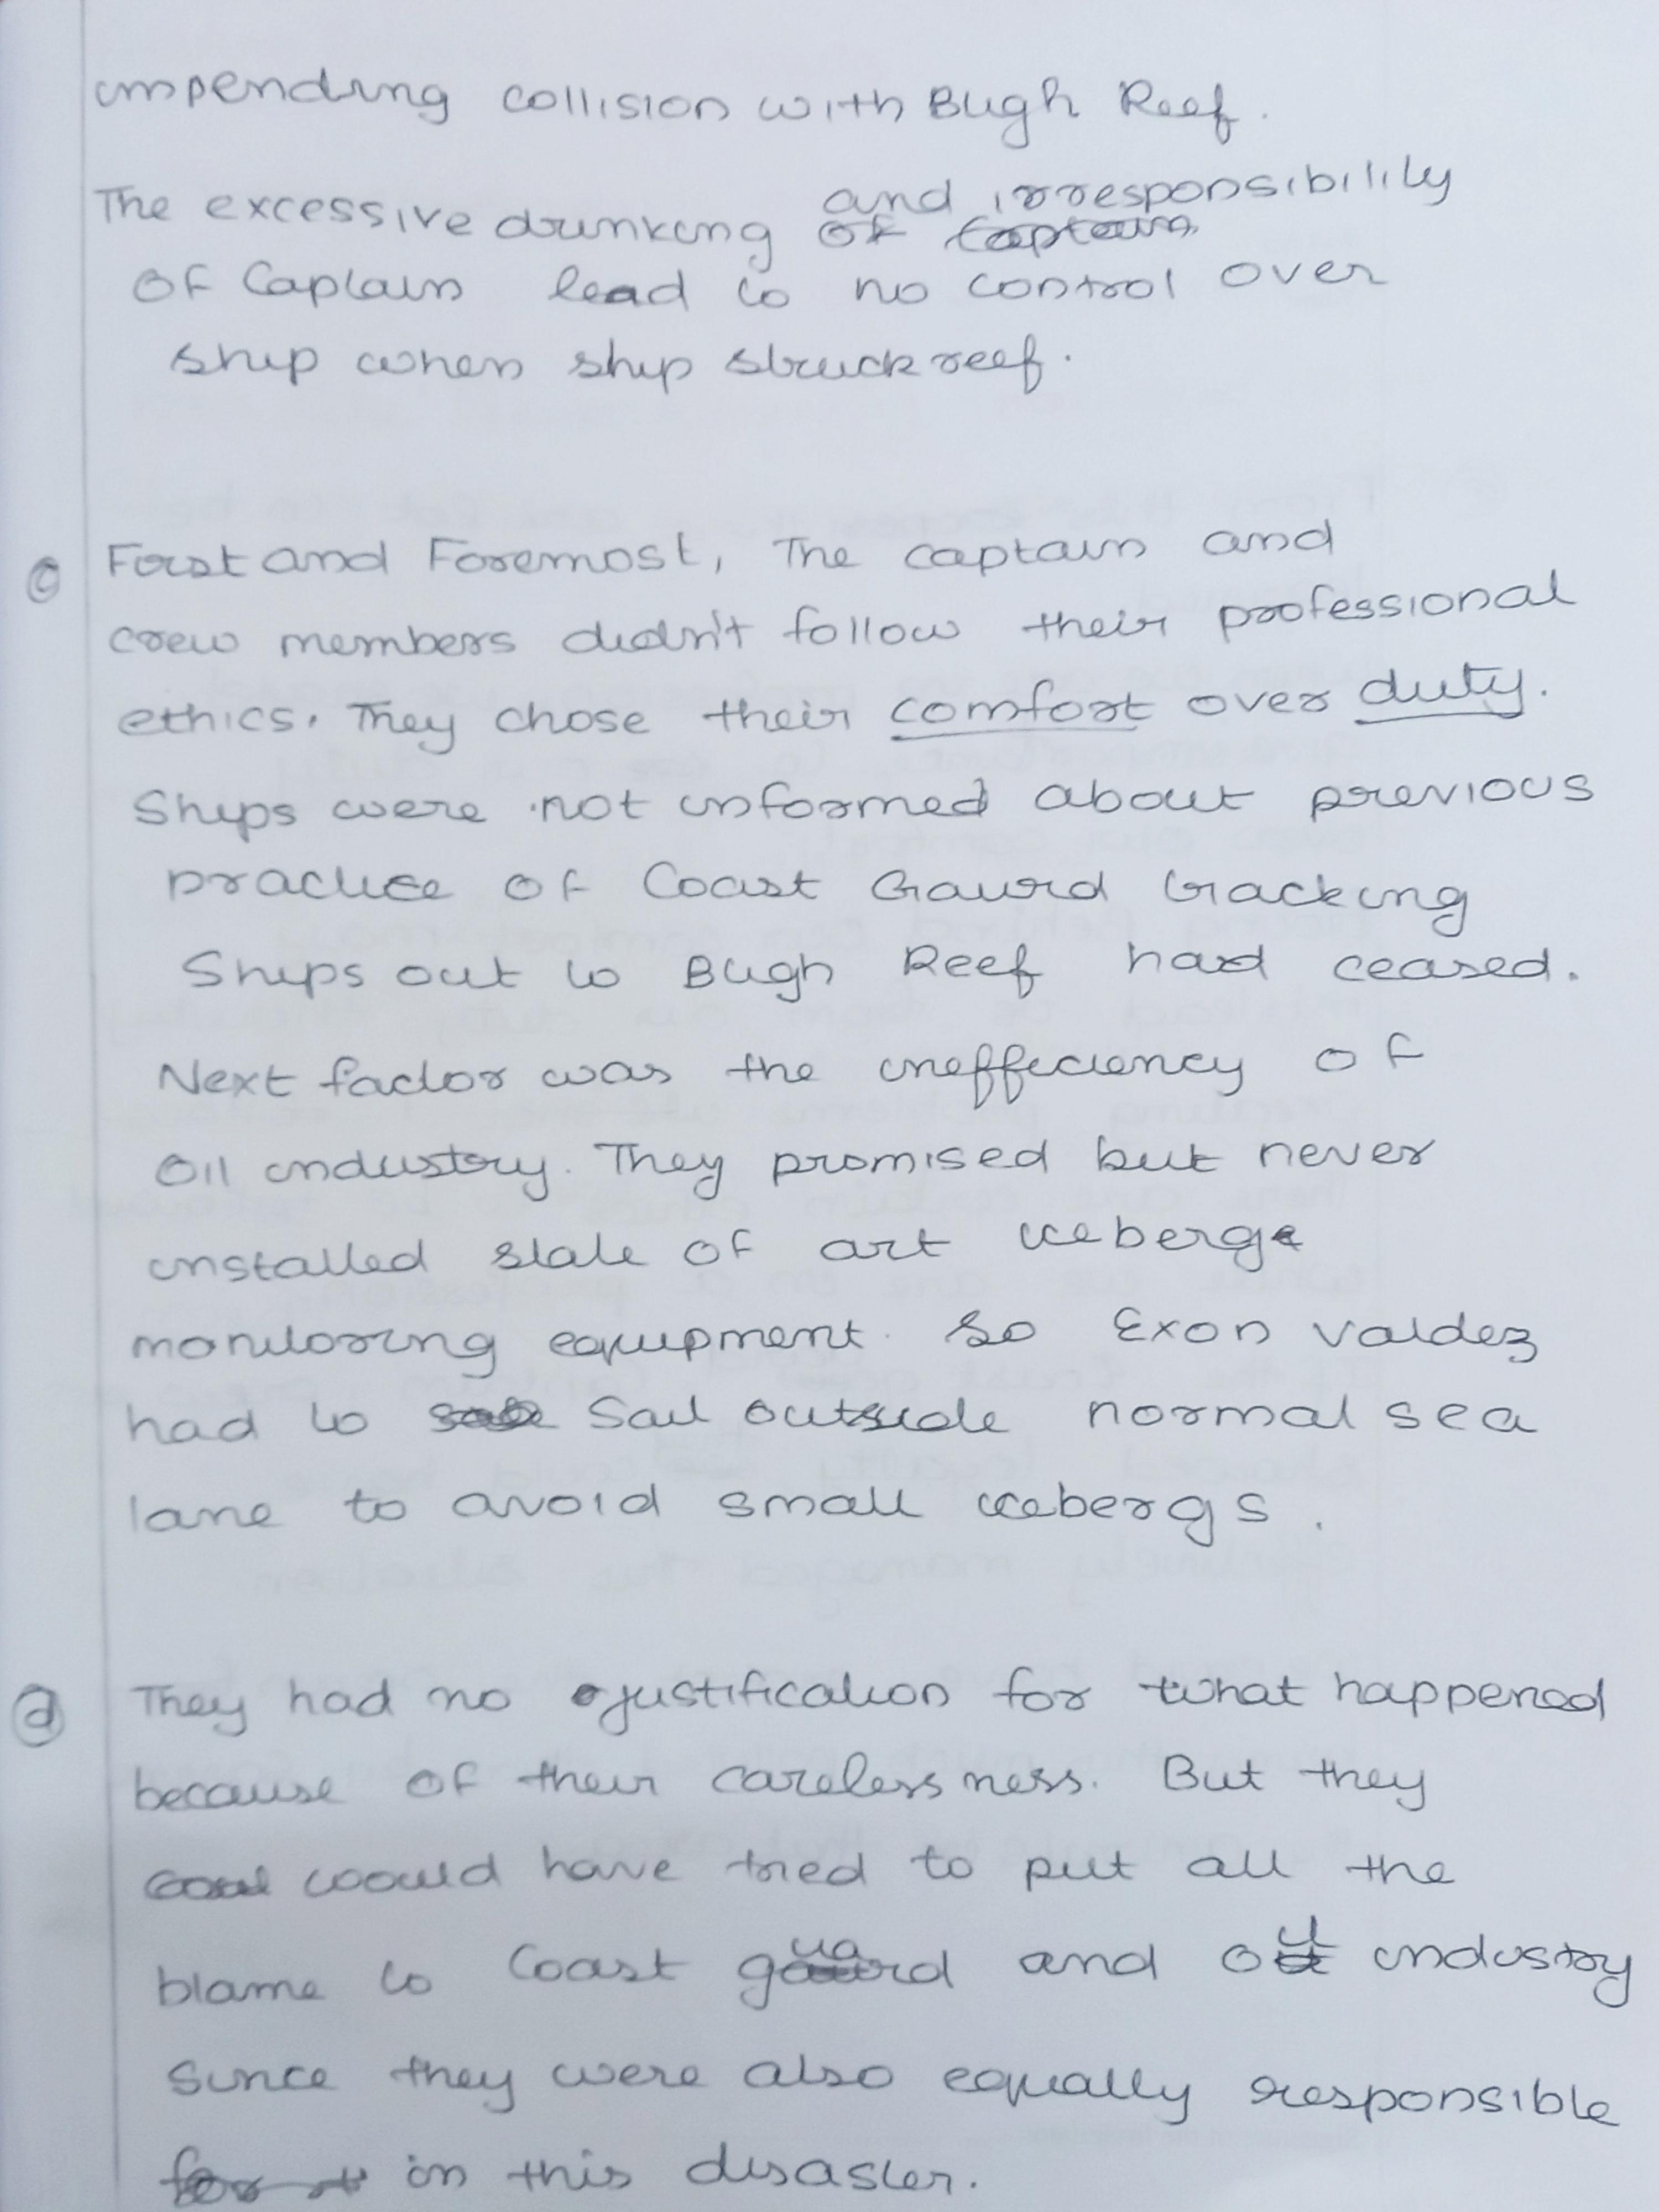 impending collision with Bligh Reef.
The excessive drunking and irresponsibility
of Captain
Of Captain lead to no control over
ship when ship struck reef.
c First and Foremost, The captain and
crew members didn't follow their professional
ethics. They chose their comfort over duty.
Ships were not informed about previous
practice of Coast Gaurd tracking
Ships out to Bligh Reef had ceased.
Next factor was the ineffeciency of
Oil industry. They promised but never
installed state of art iceberg
monitoring equipment. So Exon valdez
had to Sail outside normal sea
lane to avoid small icebergs.
d They had no justification for what happened
because of their carelessness. But they
would have tried to put all the
blame to Coast guard and oil industry
Since they were also equally responsible
in this disaster.